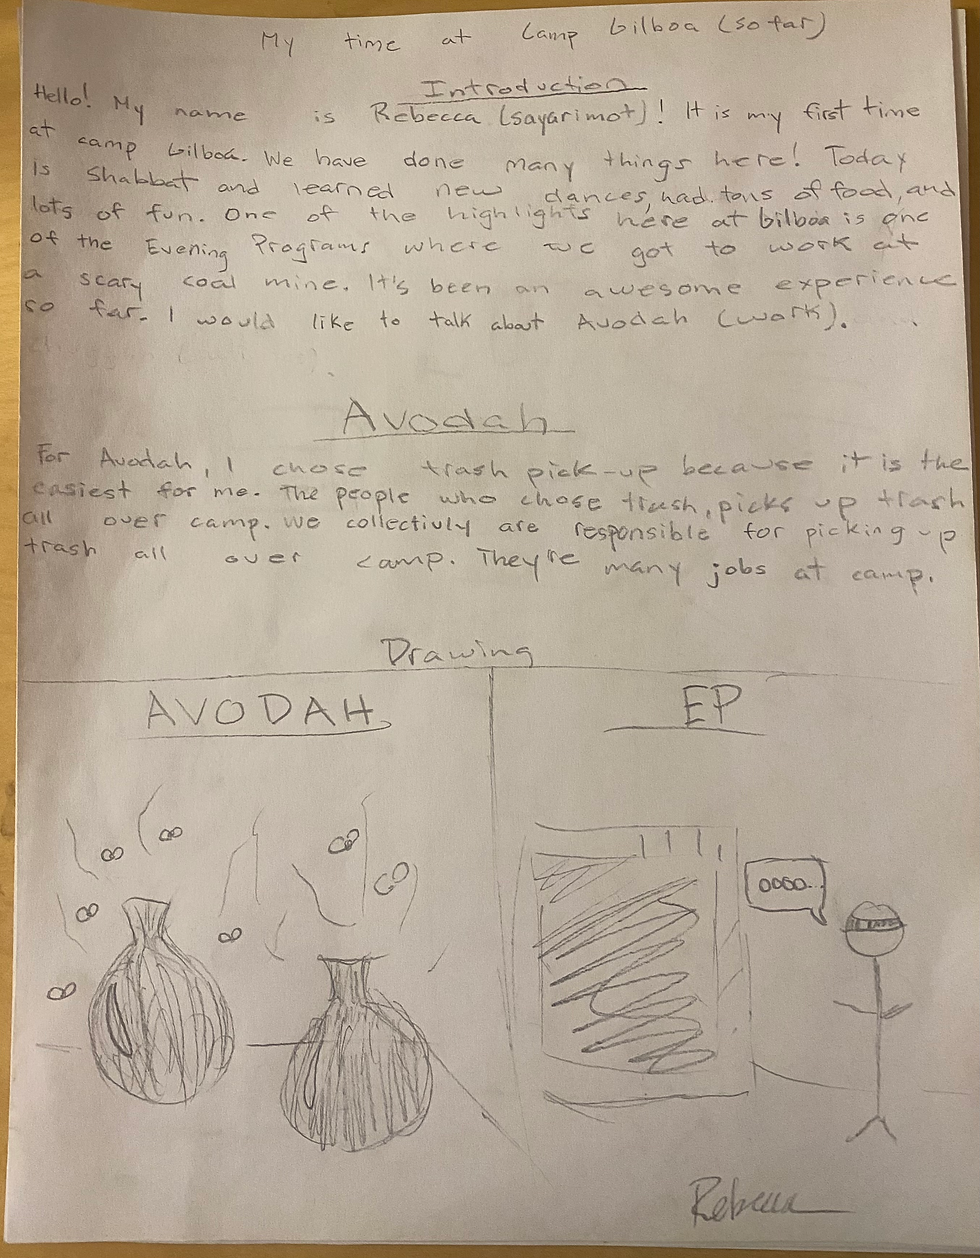 My time at Camp Gilboa (so far)
Introduction
Hello! My name is Rebecca (sayarimot)! It is my first time
at camp Gilboa. We have done many things here! Today
is Shabbat and learned new dances, had tons of food, and
lots of fun. One of the highlights here at Gilboa is one
of the Evening Programs where we got to work at
a scary coal mine. It's been an awesome experience
so far. I would like to talk about Avodah (work).
Avodah
For Avodah, I chose trash pick-up because it is the
easiest for me. The people who chose trash, picks up trash
all over camp. We collectivly are responsible for picking up
trash all over camp. They're many jobs at camp.
Drawing
AVODAH
EP
oooo...
Rebecca